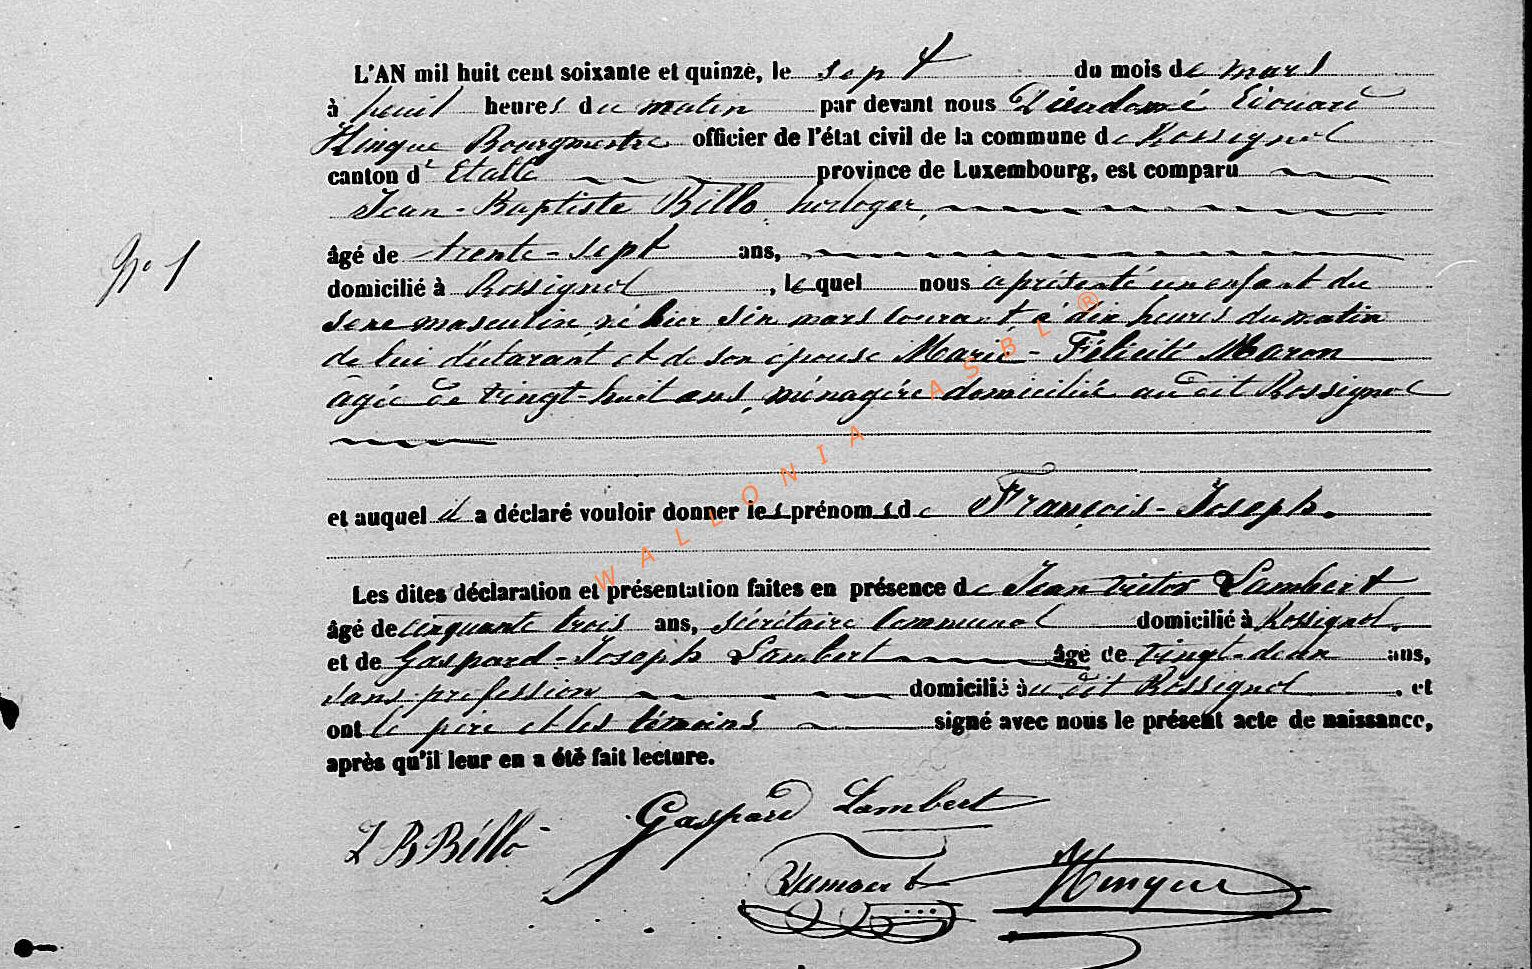 L'AN mil huit cent soixante et quinze, le sept du mois de mars
à huit heures du matin par devant nous Dieudonné Edouard
Hinque Bourgmestre officier de l'état civil de la commune de Rossignol
canton d'Etalle province de Luxembourg, est comparu
Jean-Baptiste Billo, horloger,
N° 1
âgé de trente-sept ans,
domicilié à Rossignol, lequel nous a présenté un enfant du
sexe masculin, né hier, six mars courant, à dix heures du matin
de lui déclarant et de son épouse Marie-Félicité Maron
âgée de vingt-huit ans, ménagère domiciliée au dit Rossignol
et auquel il a déclaré vouloir donner les prénoms de François-Joseph.
Les dites déclaration et présentation faites en présence de Jean Victor Lambert
âgé de cinquante trois ans, sécrétaire Communal domicilié à Rossignol,
et de Gaspard-Joseph Lambert âgé de vingt-deux ans,
sans profession domicilié au dit Rossignol, et
ont le père et les témoins signé avec nous le présent acte de naissance,
après qu'il leur en a été fait lecture.
J B Billo
Gaspard Lambert
Hinque
WALLONIA ASBL ®